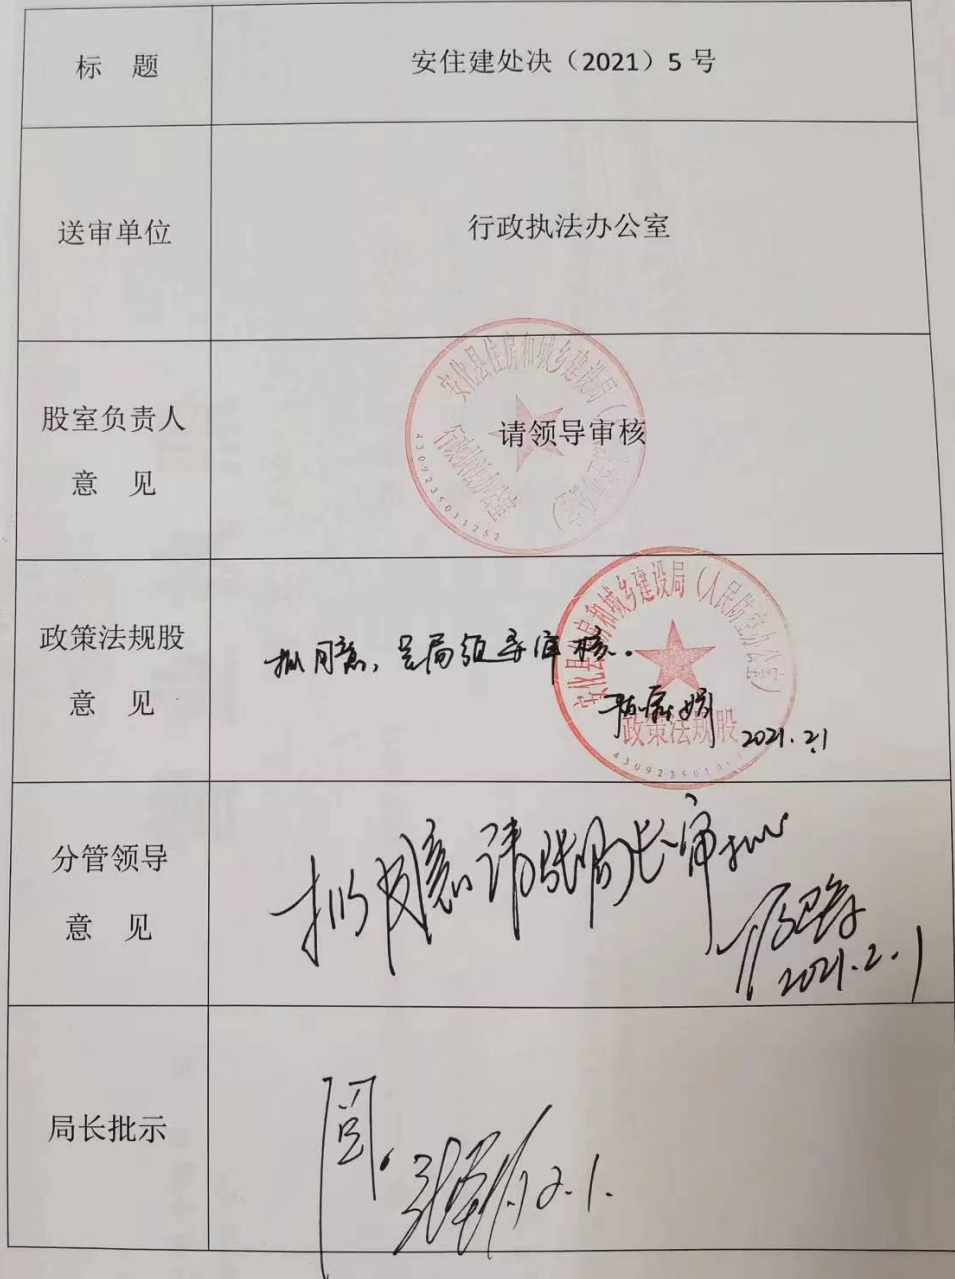 标 题
安住建处决（2021）5 号
送审单位
行政执法办公室
股室负责人
意 见
请领导审核
安化县住房和城乡建设局（人民防空办公室）
行政执法办公室
4309235011252
政策法规股
意 见
拟同意，呈局领导审核。
2021.2.1
安化县住房和城乡建设局（人民防空办公室）
政策法规股
分管领导
意 见
拟同意请张局长审批
2021.2.1
局长批示
2.1.